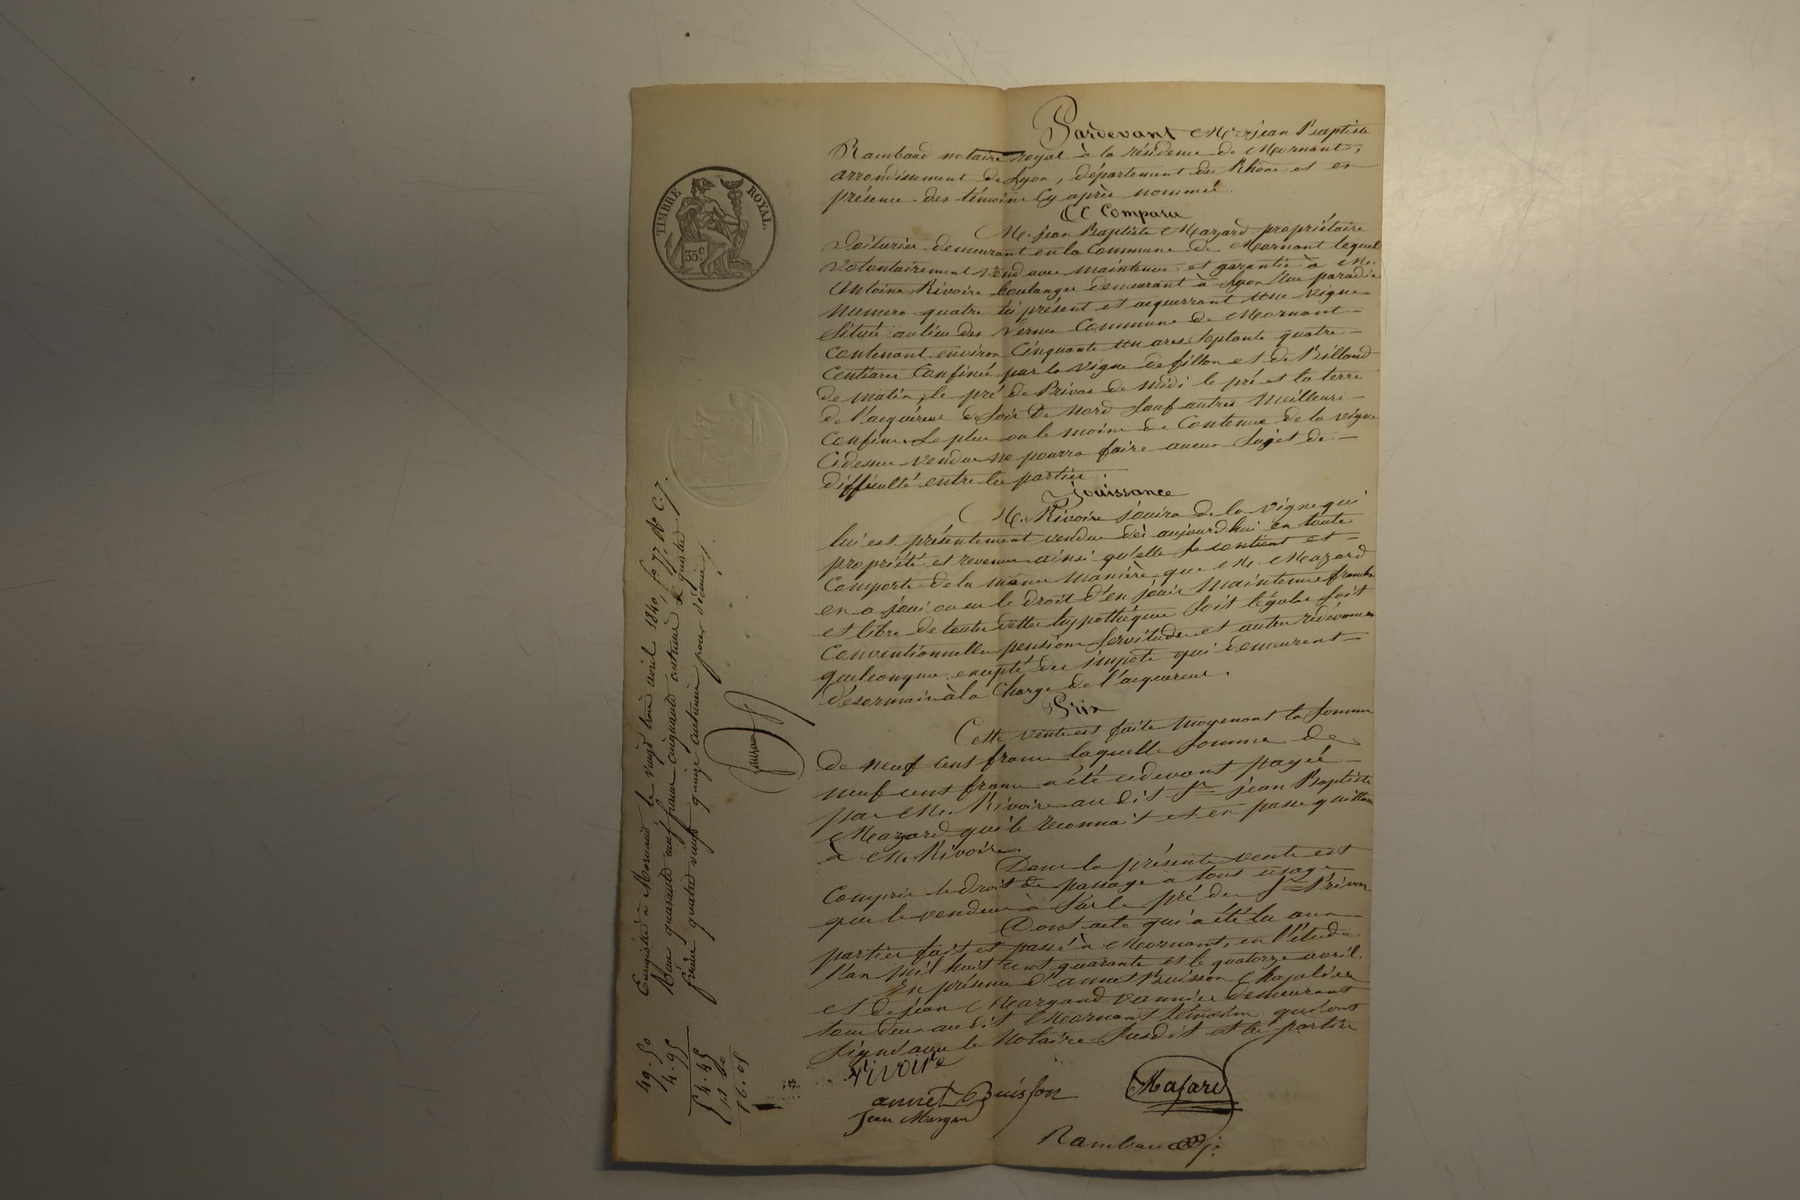 TIMBRE ROYAL.
35 c.
Pardevant Me jean Baptiste
Rambaud notaire royal à la résidence de Mornant,
arrondissement de Lyon, département du Rhône et en
présence des témoins Cy après nommés.
A Comparu
M. jean Baptiste Mazard propriétaire
Voiturier demeurant en la Commune de Mornant lequel
volontairement vend avec maintenue et garantie à M.
Antoine Rivoire boulanger demeurant à Lyon Rue paradis
Numero quatre ici présent et acquerrant Une vigne
Située au lieu des Vernes Commune de Mornant
Contenant environ Cinquante Un ares Septante quatre
Centiares Confinée par la vigne de fillon et de
de matin, le pré de Privas de midi le pré et la terre
de l'acquéreur de Soir de Nord Sauf autres Meilleurs
Confins. Le plus ou le moins de Contenue de la vigne
Cidessus vendue ne pourra faire aucun Sujet de
difficulté entre les parties.
Jouissance
M. Rivoire jouira de la vigne qui
lui est présentement vendue dès aujourdhui en toute
propriété et revenus ainsi qu'elle Se contient et
Comporte de la même manière que M. Mazard
en a joui ou eu le droit d'en jouir Maintenue franche
et libre de toutes dettes hypothèques Soit légales Soit
Conventionnelles pensions Servitudes et autres
quelconques excepté des impôts qui demeurent
désormais à la Charge de l'acquereur.
Prix
Cette vente est faite moyenant la Somme
de neuf cent francs laquelle Somme de
neuf cent francs a été cidevant payée
par M. Rivoire au dit Sr jean Baptiste
Mazard qui le reconnait et en passe quittance
à M. Rivoire.
Dans la présente vente est
Compris le droit de passage à tous usages
que le vendeur a Sur le pré du Sr Privas
Dont acte qui a été lu aux
parties fait et passé à Mornant, en l'étude
l'an Mil huit cent quarante et le quatorze avril.
En présence d'annet Buisson Chapelier
et de jean Margand vannier demeurant
tous deux au dit Mornant témoins qui ont
Signé avec le Notaire Susdit et les parties
Rivoire
annet Buisson
Jean Margan
Masard
Rambaud
Enregistré à Mornant le vingt trois avril 1840 fo 77, Ro C. 7.
Reçu quarante neuf francs cinquante centimes et quatre
francs quatre vingt quinze centimes pour décime.
49.50
4.95
54.45